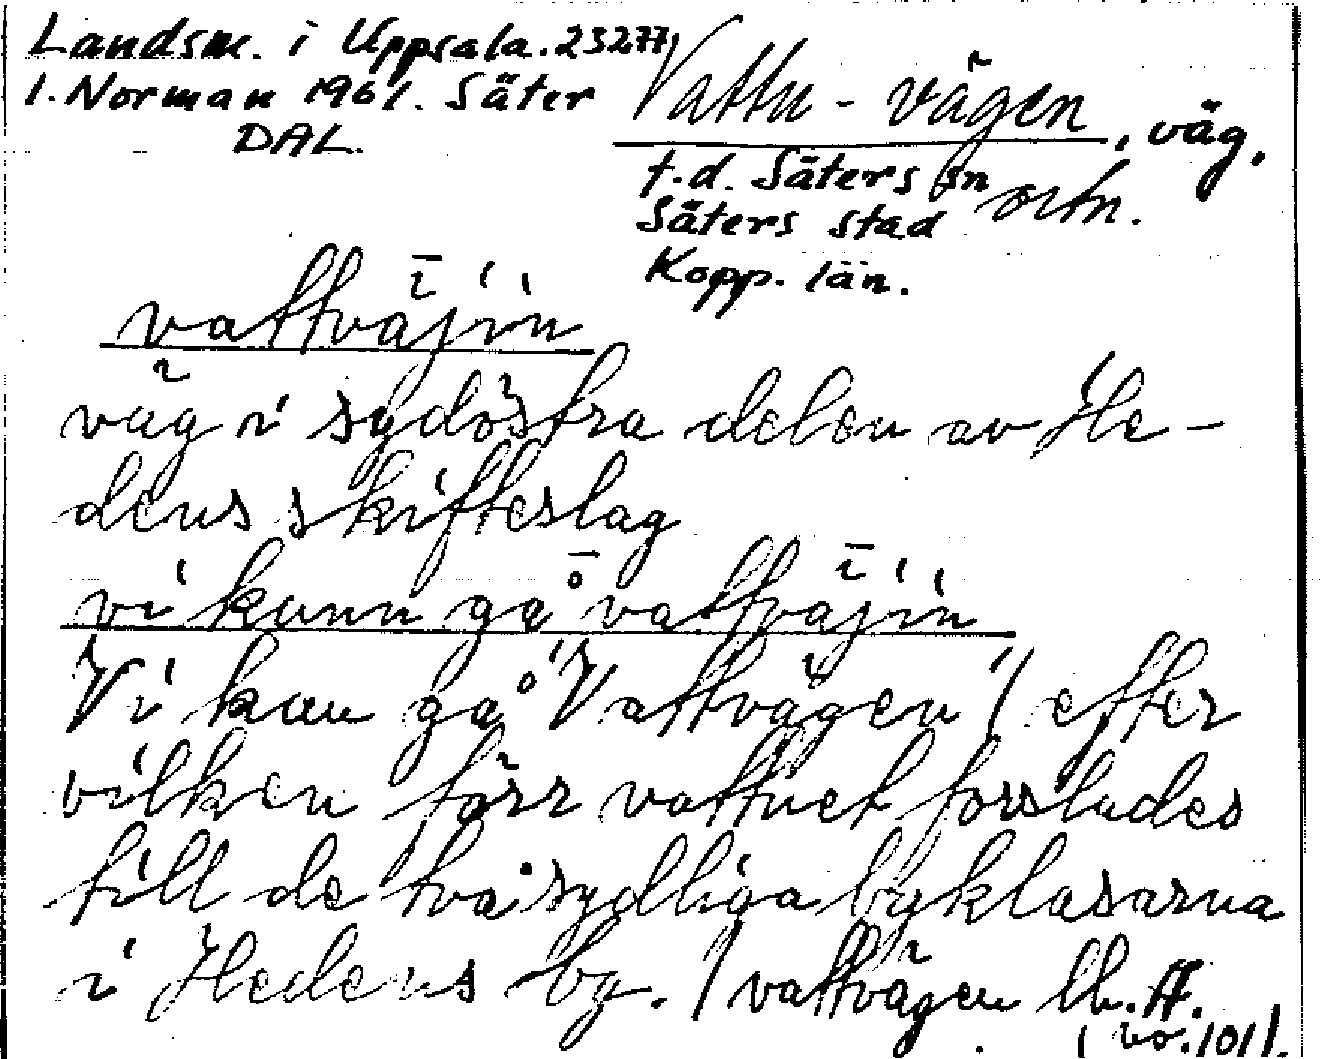 Landsm. i Uppsala. 23277
I. Norman 1961. Säter
DAL.
Vattu-vägen, väg,
f.d. Säters sn
Säters stad ortn.
Kopp. län.
vattvǟjin
väg i sydöstra delen av He-
dens skifteslag
vi kunn gå̄ vattvǟjin
Vi kan gå Vattvägen / efter
vilken förr vattnet forslades
till de två sydliga byklasarna
i Hedens by. / vattvägen
(bo. 101).